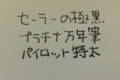 セーラーの極黒
プラチナ万年筆
パイロット特太